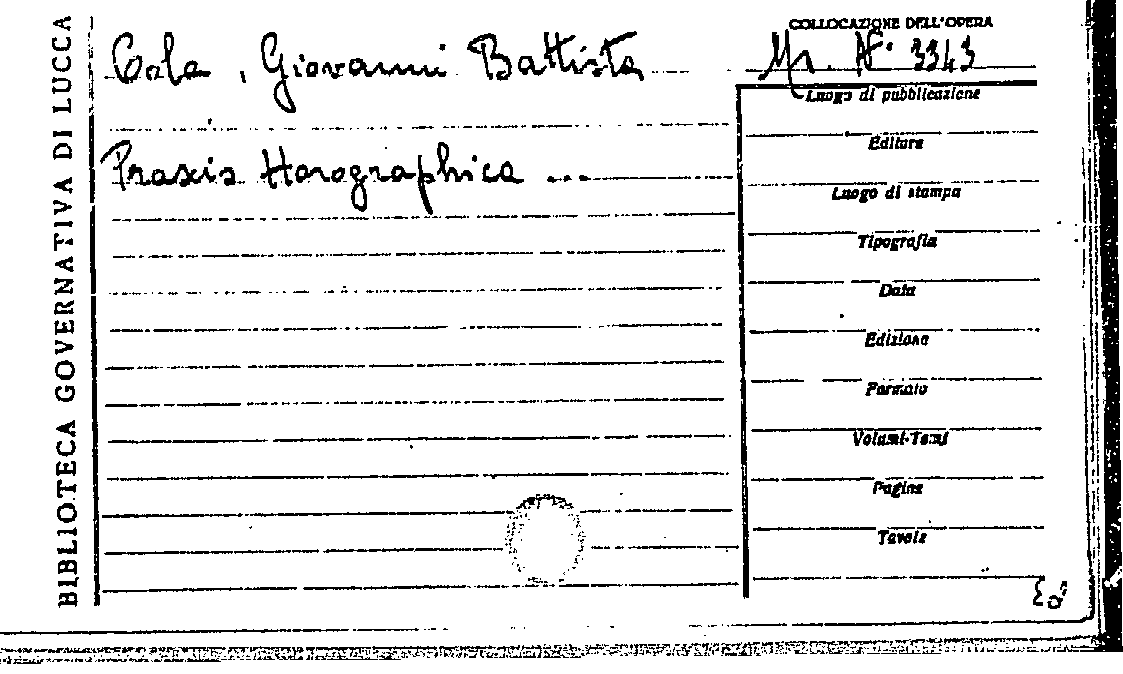 BIBLIOTECA GOVERNATIVA DI LUCCA
Cola, Giovanni Battista
Praxis Horographica ...
COLLOCAZIONE DELL'OPERA
Ms. N° 3343
Luogo di pubblicazione
Editore
Luogo di stampa
Tipografia
Data
Edizione
Formato
Volumi-Tomi
Pagine
Tavole